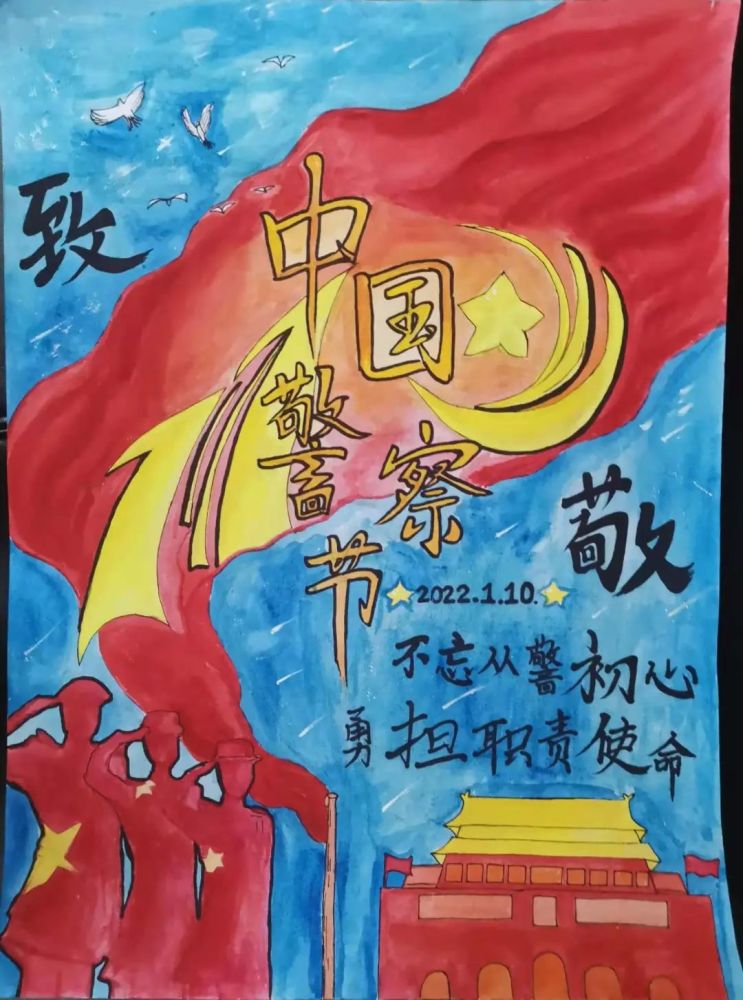 致
中国
警察
节
敬
2022.1.10.
不忘从警初心
勇担职责使命